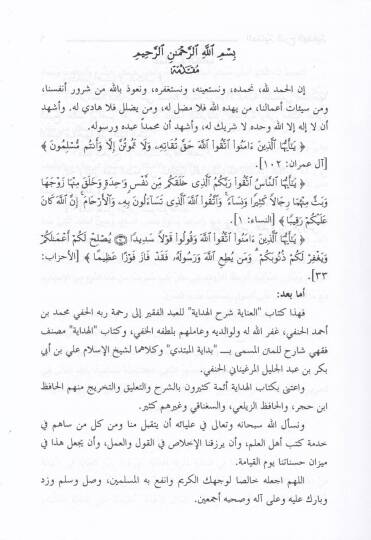 بِسْمِ اللَّهِ الرَّحْمَنِ الرَّحِيمِ
مقدمة
إن الحمد لله، نحمده، ونستعينه، ونستغفره، ونعوذ بالله من شرور أنفسنا،
ومن سيئات أعمالنا، من يهده الله فلا مضل له، ومن يضلل فلا هادي له. وأشهد
أن لا إله إلا الله وحده لا شريك له، وأشهد أن محمداً عبده ورسوله.
﴿ يَٰٓأَيُّهَا ٱلَّذِينَ ءَامَنُوا۟ ٱتَّقُوا۟ ٱللَّهَ حَقَّ تُقَاتِهِۦ وَلَا تَمُوتُنَّ إِلَّا وَأَنتُم مُّسْلِمُونَ ﴾
[آل عمران: ١٠٢].
﴿ يَٰٓأَيُّهَا ٱلنَّاسُ ٱتَّقُوا۟ رَبَّكُمُ ٱلَّذِى خَلَقَكُم مِّن نَّفْسٍ وَٰحِدَةٍ وَخَلَقَ مِنْهَا زَوْجَهَا
وَبَثَّ مِنْهُمَا رِجَالًا كَثِيرًا وَنِسَآءً ۚ وَٱتَّقُوا۟ ٱللَّهَ ٱلَّذِى تَسَآءَلُونَ بِهِۦ وَٱلْأَرْحَامَ ۚ إِنَّ ٱللَّهَ كَانَ
عَلَيْكُمْ رَقِيبًا ﴾ [النساء: ١].
﴿ يَٰٓأَيُّهَا ٱلَّذِينَ ءَامَنُوا۟ ٱتَّقُوا۟ ٱللَّهَ وَقُولُوا۟ قَوْلًا سَدِيدًا ۝ يُصْلِحْ لَكُمْ أَعْمَٰلَكُمْ
وَيَغْفِرْ لَكُمْ ذُنُوبَكُمْ ۗ وَمَن يُطِعِ ٱللَّهَ وَرَسُولَهُۥ فَقَدْ فَازَ فَوْزًا عَظِيمًا ﴾ [الأحزاب:
٣٣].
أما بعد:
فهذا كتاب "العناية شرح الهداية" للعبد الفقير إلى رحمة ربه الحفي محمد بن
أحمد الحنفي، غفر الله له ولوالديه وعاملهم بلطفه الخفي، وكتاب "الهداية" مصنف
فقهي شارح للمتن المسمى بـــ "بداية المبتدي" وكلاهما لشيخ الإسلام علي بن أبي
بكر بن عبد الجليل المرغيناني الحنفي.
واعتنى بكتاب الهداية أئمة كثيرون بالشرح والتعليق والتخريج منهم الحافظ
ابن حجر، والحافظ الزيلعي، والسغناقي وغيرهم كثير.
ونسأل الله سبحانه وتعالى في عليائه أن يتقبل منا ومن كل من ساهم في
خدمة كتب أهل العلم، وأن يرزقنا الإخلاص في القول والعمل، وأن يجعل هذا في
ميزان حسناتنا يوم القيامة.
اللهم اجعله خالصا لوجهك الكريم وانفع به المسلمين، وصل وسلم وزد
وبارك عليه وعلى آله وصحبه أجمعين.